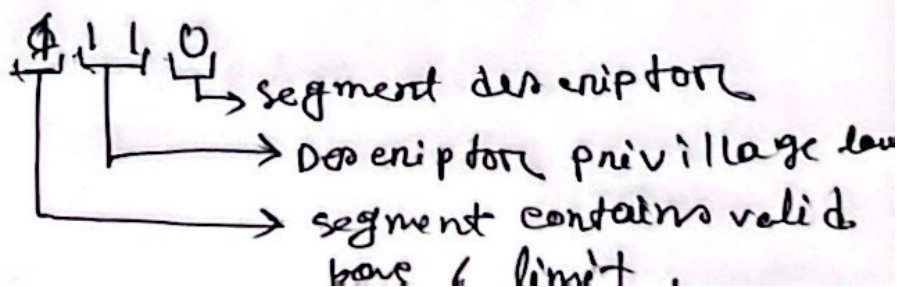 1 1 0
segment descriptor
Descriptor privillage
segment contains valid
base & limit.